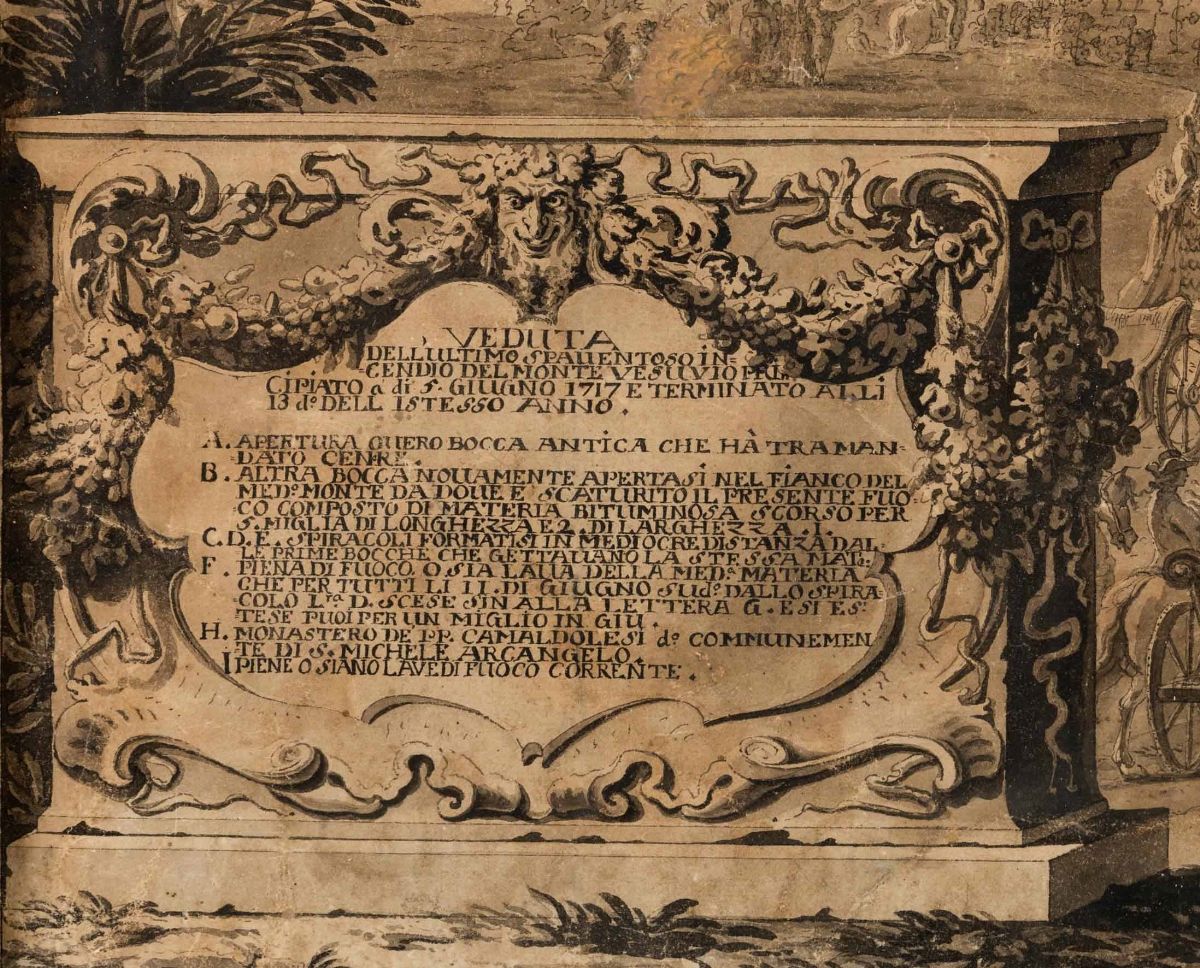 VEDUTA
DELL'ULTIMO SPAUENTOSO IN=
CENDIO DEL MONTE VESUUIO PRIN
CIPIATO a di 5. GIUGNO 1717 E TERMINATO ALLI
13 d.º DELL ISTESSO ANNO.
A. APERTURA OUERO BOCCA ANTICA CHE HÀ TRAMAN=
DATO CENRE.
B. ALTRA BOCCA NOUAMENTE APERTASI NEL FIANCO DEL
MED.º MONTE DA DOUE E' SCATURITO IL PRESENTE FUO
CO COMPOSTO DI MATERIA BITUMINOSA SCORSO PER
5. MIGLIA DI LONGHEZZA E 2. DI LARGHEZZA.
C. D. E. SPIRACOLI FORMATISI IN MEDIOCRE DISTANZA DAL
LE PRIME BOCCHE CHE GETTAUANO LA STESSA MAT.ª
F. PIENA DI FUOCO O SIA LAUA DELLA MED.ª MATERIA
CHE PER TUTTI LI 11. DI GIUGNO SUD.º DALLO SPIRA
COLO L.ra D. SCESE SIN ALLA LETTERA G. E SI ES=
TESE PUOI PER UN MIGLIO IN GIU.
H. MONASTERO DE PP. CAMALDOLESI d.º COMMUNEMEN
TE DI S. MICHELE ARCANGELO.
I PIENE O SIANO LAVE DI FUOCO CORRENTE.